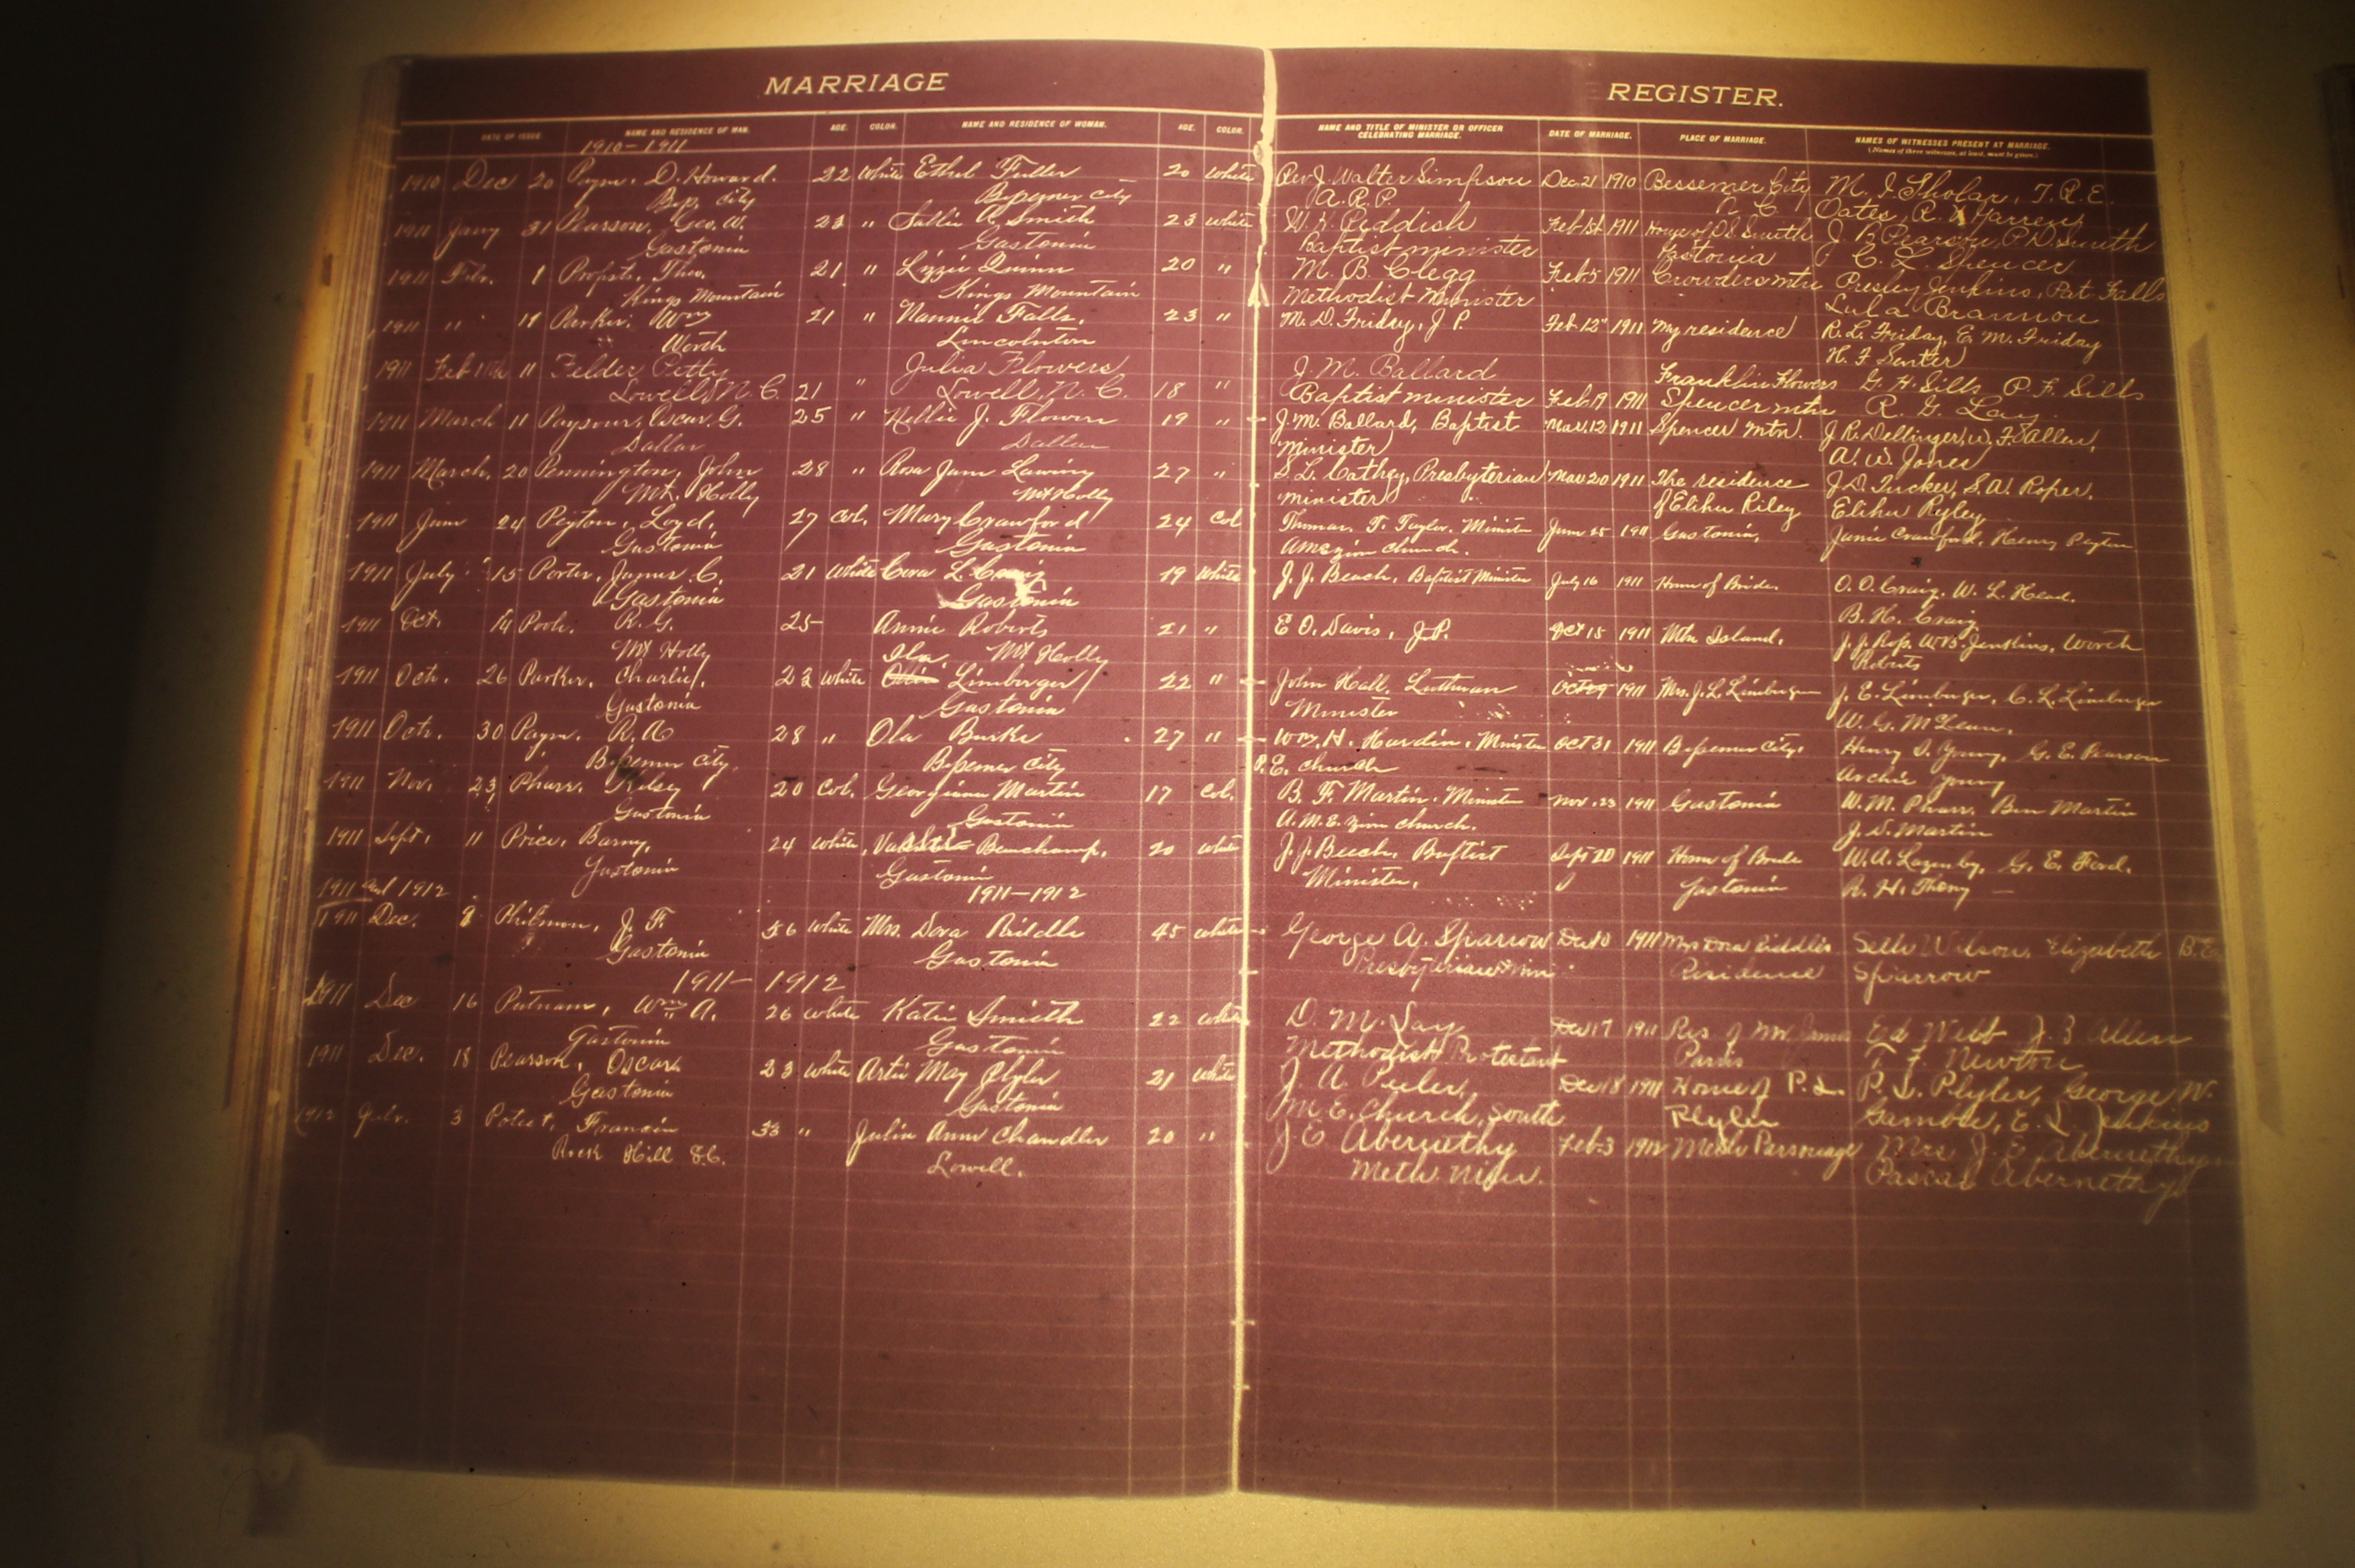 MARRIAGE
DATE OF ISSUE. NAME AND RESIDENCE OF MAN. AGE. COLOR. NAME AND RESIDENCE OF WOMAN. AGE. COLOR.
1910-1911
1910 Dec 20 D. Howard. 22 White Ethel Fuller 20 White
Bess. City Bessemer City
1911 Jany 31 Pearson, Geo. W. 23 " Sallie A Smith 23 White
Gastonia Gastonia
1911 Feb. 1 Propst, Theo. 21 " Lizzie Quinn 20 "
Kings Mountain Kings Mountain
1911 " 11 Parker. Wm 21 " Nannie Falls. 23 "
Worth Lincolnton
1911 Feb 11 Felder Petty Julia Flowers
Lowell N.C. 21 " Lowell N.C. 18 "
1911 March 11 Paysour, Oscar. G. 25 " Nellie J. Flowers 19 "
Dallas Dallas
1911 March. 20 Pennington, John 28 " Rosa Jane Lawing 27 "
Mt. Holly Mt Holly
1911 June 24 Peyton, Loyd. 27 Col. Mary Crawford 24 Col
Gastonia Gastonia
1911 July 15 Porter, James C. 21 White Cora L. Craig 19 White
Gastonia Gastonia
1911 Oct. 14 Poole. R. G. 25 Annie Roberts 21 "
Mt Holly Mt Holly
1911 Oct. 26 Parker. Charlie. 23 White Ila Limberger 22 "
Gastonia Gastonia
1911 Oct. 30 R. A 28 " Ola Burke 27 "
Bessemer City. Bessemer City
1911 Nov. 23, Pharr. 20 Col. Georgiana Martin 17 Col.
Gastonia Gastonia
1911 Sept. 11 Price. Barny. 24 White, Beauchamp. 20 White
Gastonia Gastonia
1911 and 1912 1911-1912
1911 Dec. 8 Philmon, J. F. 56 White Mrs. Dora Riddle 45 White
Gastonia Gastonia
1911-1912
1911 Dec 16 Putnam, Wm A. 26 White Katie Smith 22 White
Gastonia Gastonia
1911 Dec. 18 Pearson, Oscar 23 White Artie May Plyler 21 White
Gastonia Gastonia
1912 3 Poteet, Francis 33 " Julia Ann Chandler 20 "
Rock Hill S.C. Lowell.
REGISTER.
NAME AND TITLE OF MINISTER OR OFFICER CELEBRATING MARRIAGE. DATE OF MARRIAGE. PLACE OF MARRIAGE. NAMES OF WITNESSES PRESENT AT MARRIAGE.
(Names of three witnesses, at least, must be given.)
Rev J. Walter Simpson Dec. 21 1910 Bessemer City M. I Sholar, T. R. E.
A. R. P. N C Oates, R. Warren
W. H. Reddish Feb 1st 1911 House of D. S. Smith J. B. Pearson, P. D. Smith
Baptist minister Gastonia C. L. Spencer
M. B. Clegg Feb. 5 1911 Crowders mtn Presley Jenkins, Pat Falls
Methodist Minister Lula Brannon
M. D. Friday, J. P. Feb. 12" 1911 My residence R. L. Friday, E. M. Friday
H. F Senter
J. M. Ballard Franklin Flowers G. H. Sills P. F. Sills
Baptist minister Feb. 19 1911 Spencer mtn R. G. Lay.
J. M. Ballard, Baptist Mar. 12 1911 Spencer Mtn. J R. Dellinger, W. F. Allen,
Minister A. W. Jones
S. L. Cathey, Presbyterian Mar 20 1911 The residence J. D. Tucker, S. A. Roper,
minister of Elihu Riley Elihu Ryley
Thomas. F. Taylor. Minister June 25 1911 Gastonia, Janie Crawford, Henry Peyton
Ame zion church.
J. J. Beach, Baptist Minister July 16 1911 Home of Bride. O. O. Craig. W. L. Head.
B. H. Craig
E O. Davis, J.P. Oct 15 1911 Mtn Island. J. J. Ross. W B. Jenkins, Worth
Roberts
John Hall. Lutheran Oct 29 1911 Mrs. J. L. Limberger J. E. Limberger, C. L. Limberger
Minister W. G. McLean.
Wm. H. Hardin. Minister Oct 31 1911 Bessemer City. Henry S. Young. G. E. Pearson
P. E. church Archie Young
B. F. Martin. Minister Nov. 23 1911 Gastonia W. M. Pharr. Ben Martin
A. M. E. Zion church. J. D. Martin
J. J. Beach. Baptist Sept 20 1911 Home of Bride W. A. Lazenby. G. E. Ford.
Minister. Gastonia R. H.
George A. Sparrow Dec 10 1911 Mrs Dora Riddles Selle Wilson, Elizabeth B. E.
Presbyterian min Residence Sparrow
D. M. Lay Dec 17 1911 Res of Mr James Ed Webb J. Z Allen
Methodist Protestant T. F. Newton
J. A Peeler, Dec 18 1911 Home of P. L. P. L. Plyler, George W.
M E. Church, South Plyler Gamble, E. L. Jenkins
J. E Abernethy Feb-3 1912 Meth Parsonage Mrs J. E Abernethy
Meth Pascal Abernethy